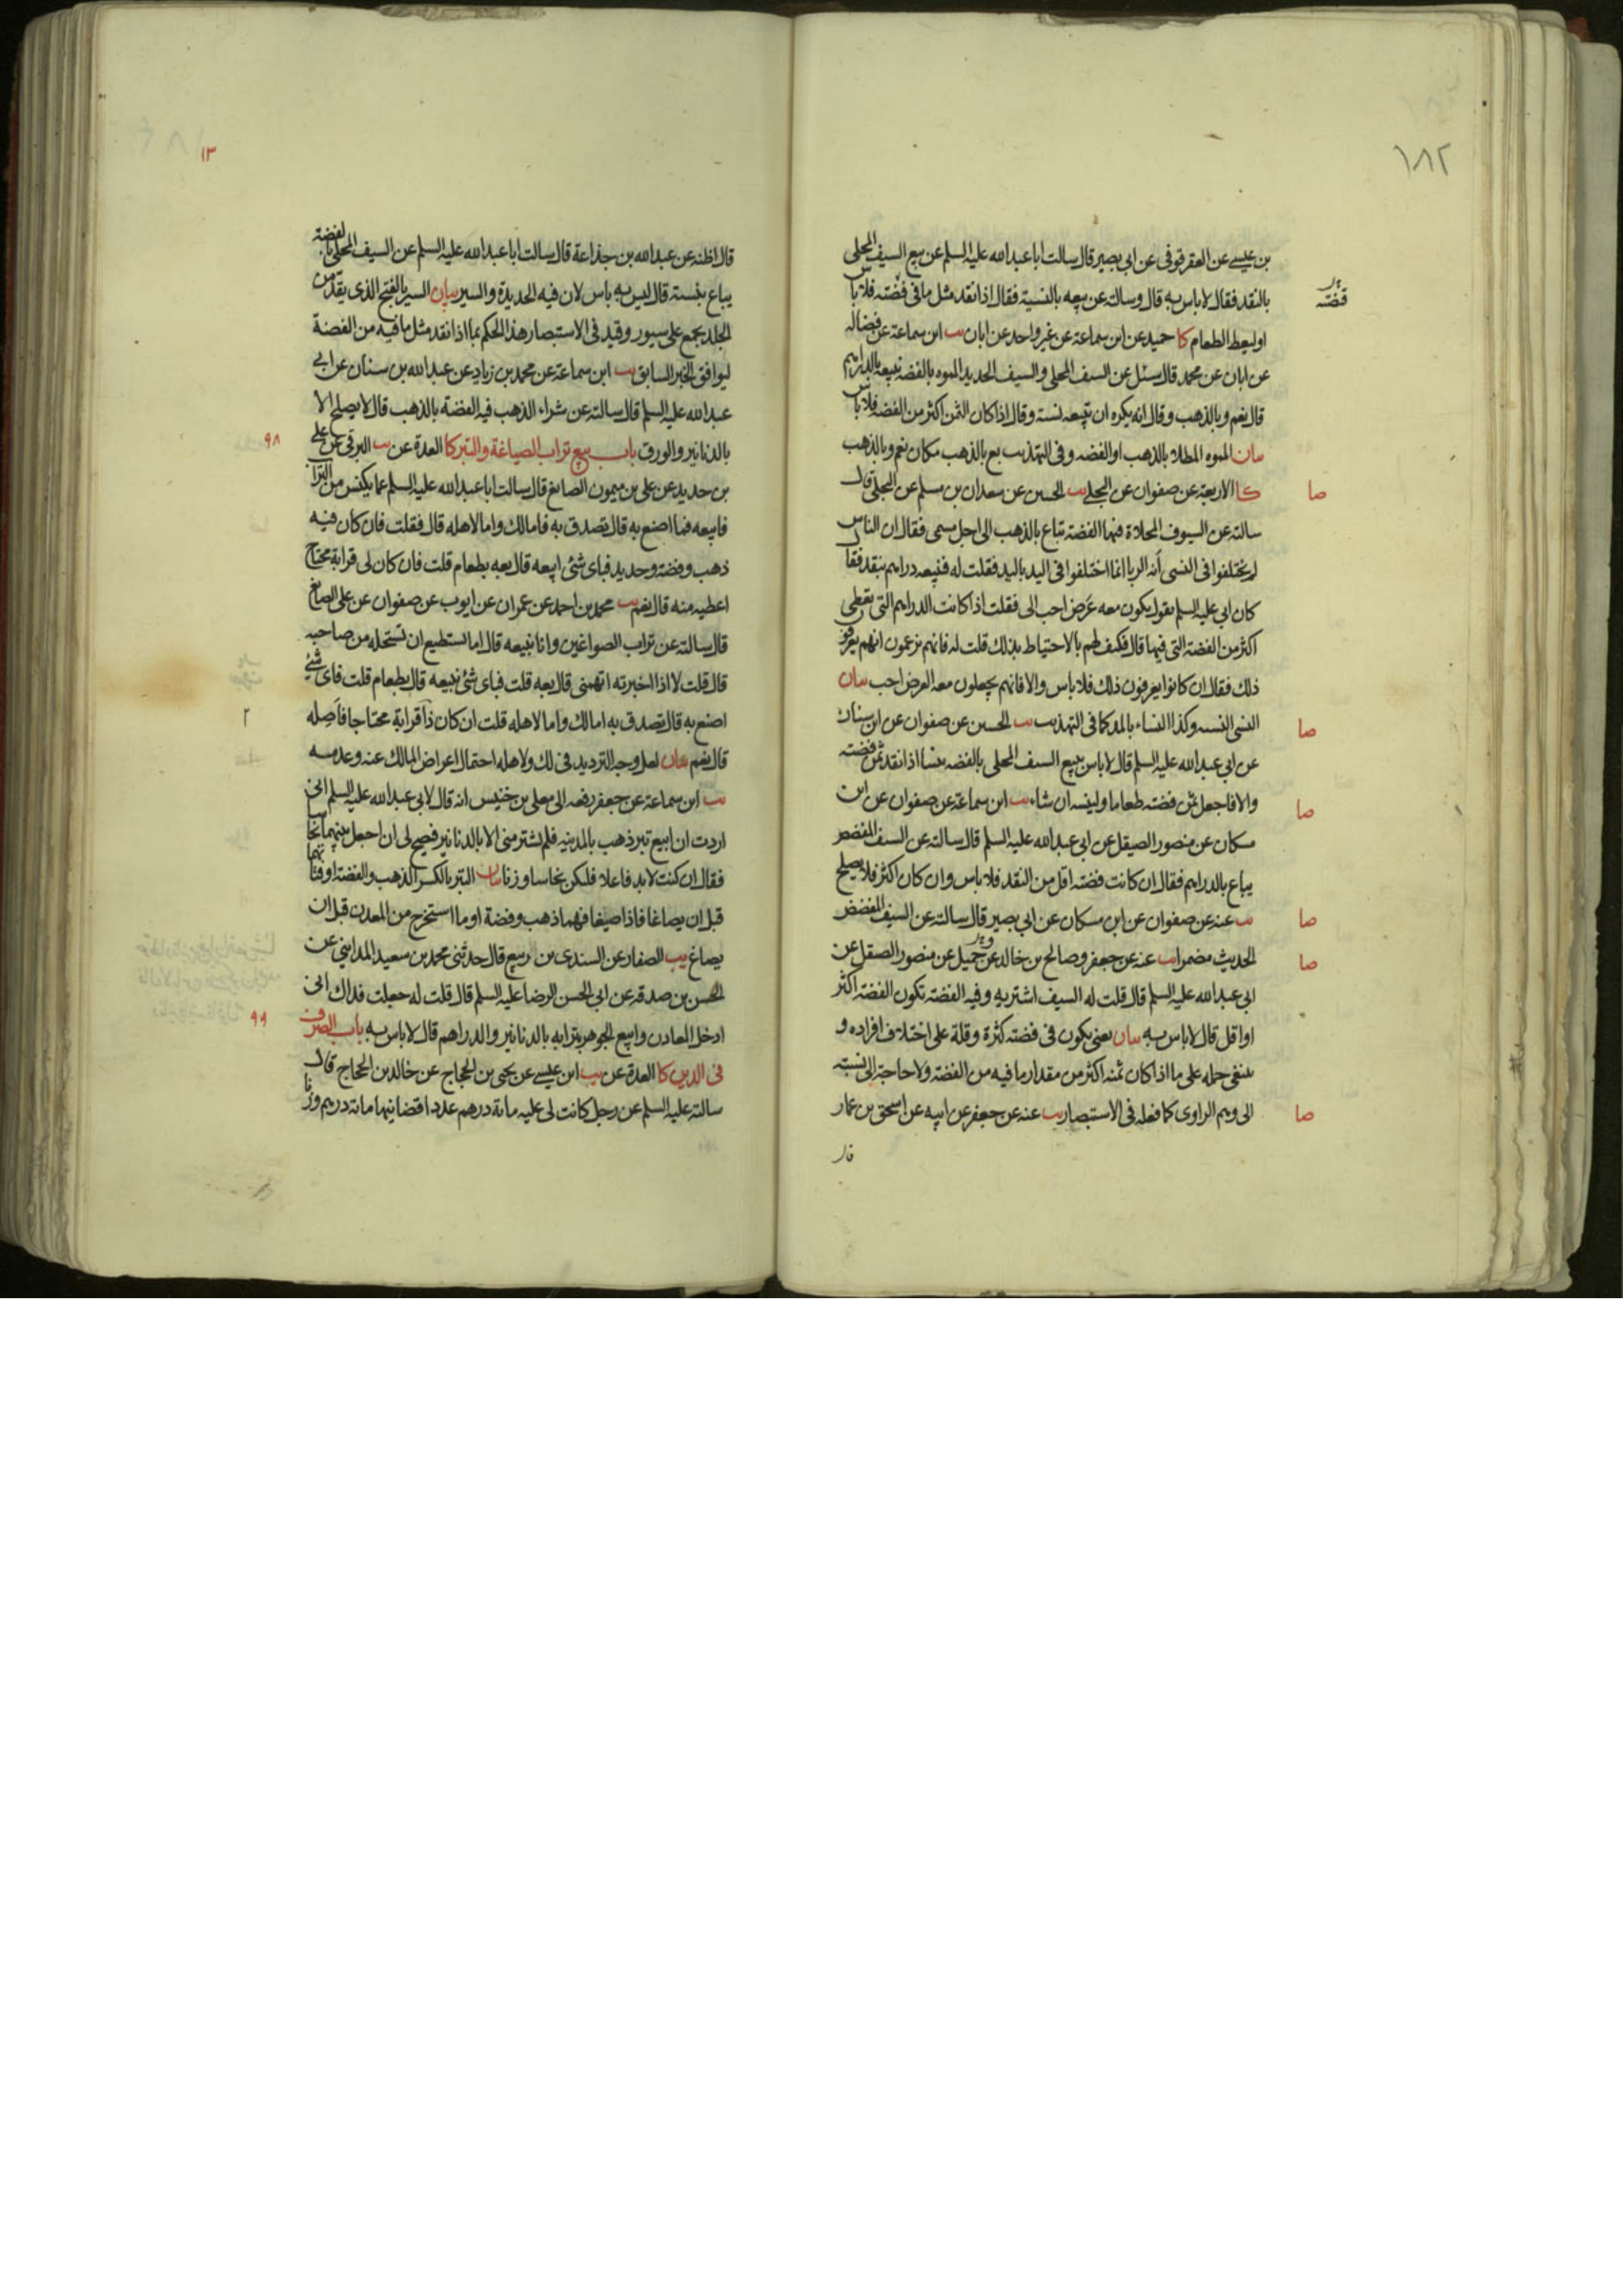 ١٨٢
بن عيسى عن العقرقوفى عن ابى بصير قال سالت ابا عبدالله عليه السلم عن بيع السيف المحلى
بالنقد فقال لا باس به قال وسالته عن بيعه بالنسية فقال اذا نقد مثل ما فى فضته فلا باس
فضته
او ليعط الطعام كا حميد عن ابن سماعة عن غير واحد عن ابان يب ابن سماعة عن فضاله
عن ابان عن محمد قال سئل عن السيف المحلى والسيف الحديد المموه بالفضه نبيعه بالدراهم
قال نعم وبالذهب وقال انه يكره ان تبيعه نسية وقال اذا كان الثمن اكثر من الفضه فلا باس
بيان المموه المطلا بالذهب او الفضه وفى التهذيب بع بالذهب مكان نعم وبالذهب
صا
كا الاربعة عن صفوان عن البجلى يب الحسين عن سعدان بن مسلم عن البجلى قال
سالته عن السيوف المحلاة فيها الفضة تباع بالذهب الى اجل مسمى فقال ان الناس
لم يختلفوا فى النسى أنه الربا انما اختلفوا فى اليد باليد فقلت له فنبيعه دراهم بنقد فقال
كان ابى عليه السلم يقول يكون معه عَرَض احب الى فقلت اذا كانت الدراهم التى يعطى
اكثر من الفضة التى فيها قال فكيف لهم بالاحتياط بذلك قلت له فانهم يزعمون انهم يعرفون
ذلك فقال ان كانوا يعرفون ذلك فلا باس والا فانهم يجعلون معه العرض احب بيان
صا
النسى النسيه وكذا النساء بالمد كما فى التهذيب يب الحسين عن صفوان عن ابن سنان
عن ابى عبدالله عليه السلم قال لا باس ببيع السيف المحلى بالفضه بنسا اذا نقد ثمن فضته
صا
والا فاجعل ثمن فضته طعاما ولينسه ان شاء يب ابن سماعة عن صفوان عن ابن
مسكان عن منصور الصيقل عن ابى عبدالله عليه السلم قال سالته عن السيف المفضض
يباع بالدراهم فقال ان كانت فضته اقل من النقد فلا باس وان كان اكثر فلا يصلح
صا
يب عنه عن صفوان عن ابن مسكان عن ابى بصير قال سالته عن السيف المفضض
صا
الحديث مضمرا يب عنه عن جعفر وصالح بن خالد عن جميل عن منصور الصيقل عن
ابى عبدالله عليه السلم قال قلت له السيف اشتريه وفيه الفضة تكون الفضة اكثر
او اقل قال لا باس به بيان يعنى يكون فى فضته كثرة وقلة على اختلاف افراده و
ينبغى حمله على ما اذا كان ثمنه اكثر من مقدار ما فيه من الفضة ولا حاجة الى نسبته
صا
الى وهم الراوى كما فعله فى الاستبصار يب عنه عن جعفر عن ابيه عن اسحق بن عمار
قال
١٣
قال اظنه عن عبدالله بن جذاعة قال سالت ابا عبدالله عليه السلم عن السيف المحلى بالفضة
يباع بنسية قال ليس به باس لان فيه الحديدة والسير بيان السير بالفتح الذى يقد من
الجلد يجمع على سيور وقيد فى الاستبصار هذا الحكم بما اذا نقد مثل ما فيه من الفضة
ليوافق الخبر السابق يب ابن سماعة عن محمد بن زياد عن عبدالله بن سنان عن ابى
عبدالله عليه السلم قال سالته عن شراء الذهب فيه الفضة بالذهب قال لا يصلح الا
٩٨
بالدنانير والورق باب بيع تراب الصياغة والتبر كا العدة عن يب البرقى عن على
بن حديد عن على بن ميمون الصايغ قال سالت ابا عبدالله عليه السلم عما يكنس من التراب
فابيعه فما اصنع به قال تصدق به فاما لك واما لاهله قال فقلت فان كان فيه
ذهب وفضة وحديد فباى شئ ابيعه قال بعه بطعام قلت فان كان لى قرابة محتاج
اعطيه منه قال نعم يب محمد بن احمد عن عمران عن ايوب عن صفوان عن على الصايغ
قال سالته عن تراب الصواغين وانا نبيعه قال اما تستطيع ان تستحله من صاحبه
قال قلت لا اذا اخبرته اتهمنى قال بعه قلت فباى شئ نبيعه قال بطعام قلت فاى شئ
٢
اصنع به قال تصدق به اما لك واما لاهله قلت ان كان ذا قرابة محتاجا فاَصِله
قال نعم بيان لعل وجه الترديد فى لك ولاهله احتمال اعراض المالك عنه وعدمه
يب ابن سماعة عن جعفر رفعه الى معلى بن خنيس انه قال لابى عبدالله عليه السلم انى
اردت ان ابيع تبر ذهب بالمدينه فلم يشتر منى الا بالدنانير فيصح لى ان اجعل بينهما نحاسا
فقال ان كنت لا بد فاعلا فليكن نحاسا وزنا بيان التبر بالكسر الذهب والفضة او فتاتهما
قبل ان يصاغا فاذا صيغا فهما ذهب وفضة او ما استخرج من المعدن قبل ان
يصاغ يب الصفار عن السندى بن ربيع قال حدثنى محمد بن سعيد المداينى عن
الحسن بن صدقه عن ابى الحسن الرضا عليه السلم قال قلت له جعلت فداك انى
٩٩
ادخل المعادن وابيع الجوهر بترابه بالدنانير والدراهم قال لا باس به باب الصرف
فى الدين كا العدة عن يب ابن عيسى عن يحيى بن الحجاج عن خالد بن الحجاج قال
سالته عليه السلم عن رجل كانت لى عليه مائة درهم عددا قضانيها مائة درهم وزنا